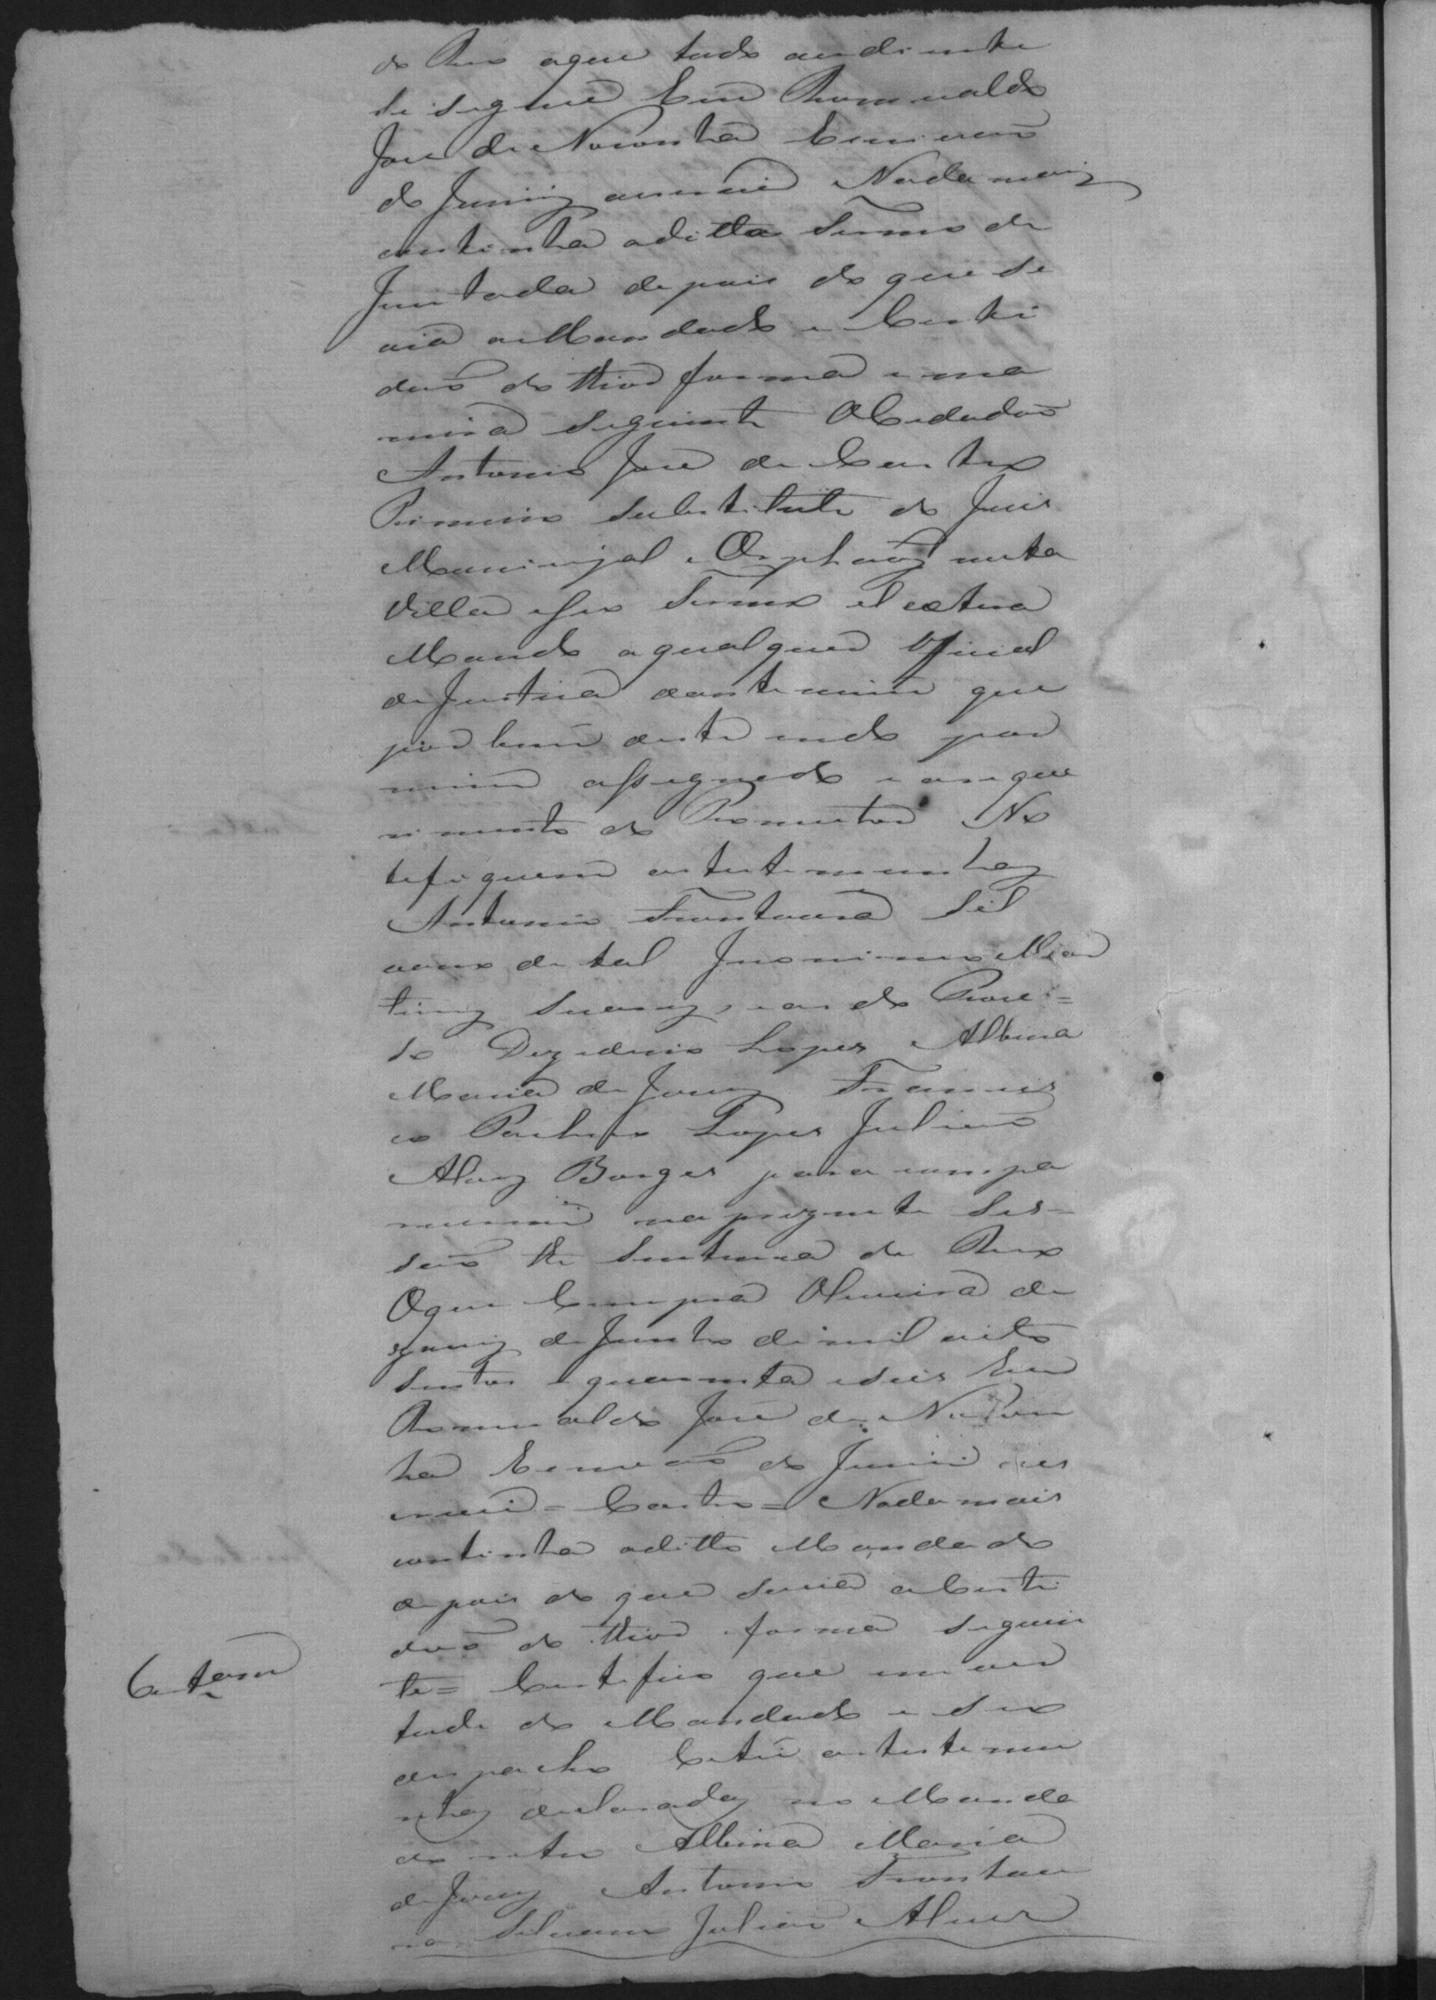 do Reo aque tudo aodiante
se segue Eu Romualdo
José de Noronha Escrivaõ
do Jurii escrevi Nada mais
continha o ditto Termo de
Juntada depois do que se
via o Mandado e Certi
daõ do thior forma e ma
neira seguinte O Cidadaõ
Antonio José de Castro
Primeiro substituto do Juis
Municipal e Orphaõs nesta
Villa e seu Termo et cætera
Mando a qualquer Oficial
de Justica dante mim que
por bem deste indo por
mim assegnado e a reque
rimento do Promotor No
tefiquem as testemunhas
Antonio Frontoura Sil
vano de tal Jeronimo Mar
tins Soares, e ao do Proce=
so Dezederio Lopes Albina
Maria de Jesus Francis
co Pacheco Lopes Juliaõ
Alves Borges para compa
recerem na prezente Ses=
saõ the Sentenca do Reo
O que Cumpra Oliveira de
de Junho de mil oito
sentos e quarenta e seis Eu
Romualdo José de Noron
ha Escrivaõ do Jurii es
crevi = Castro = Nada mais
continha o ditto Mandado
depois do que se via a Certi
daõ do thior e forma seguin
te = Certefico que em ver
tude do Mandado e seu
despacho Citei as testemu
nhas declaradas no Manda
do retro Albina Maria
de Jesus Antonio Frontou
ra Silvano Juliaõ Alves